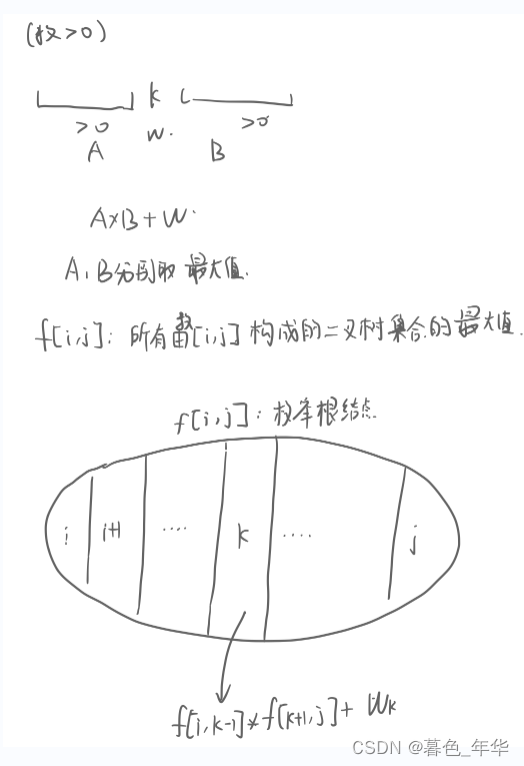 (权>0)
k
>0 w. >0
A B
A×B+W.
A,B分别取最大值.
f[i,j]: 所有由数[i,j]构成的二叉树集合的最大值.
f[i,j]: 枚举根结点
i i+1 .... k .... j
f[i,k-1]*f[k+1,j]+Wk
CSDN @暮色_年华